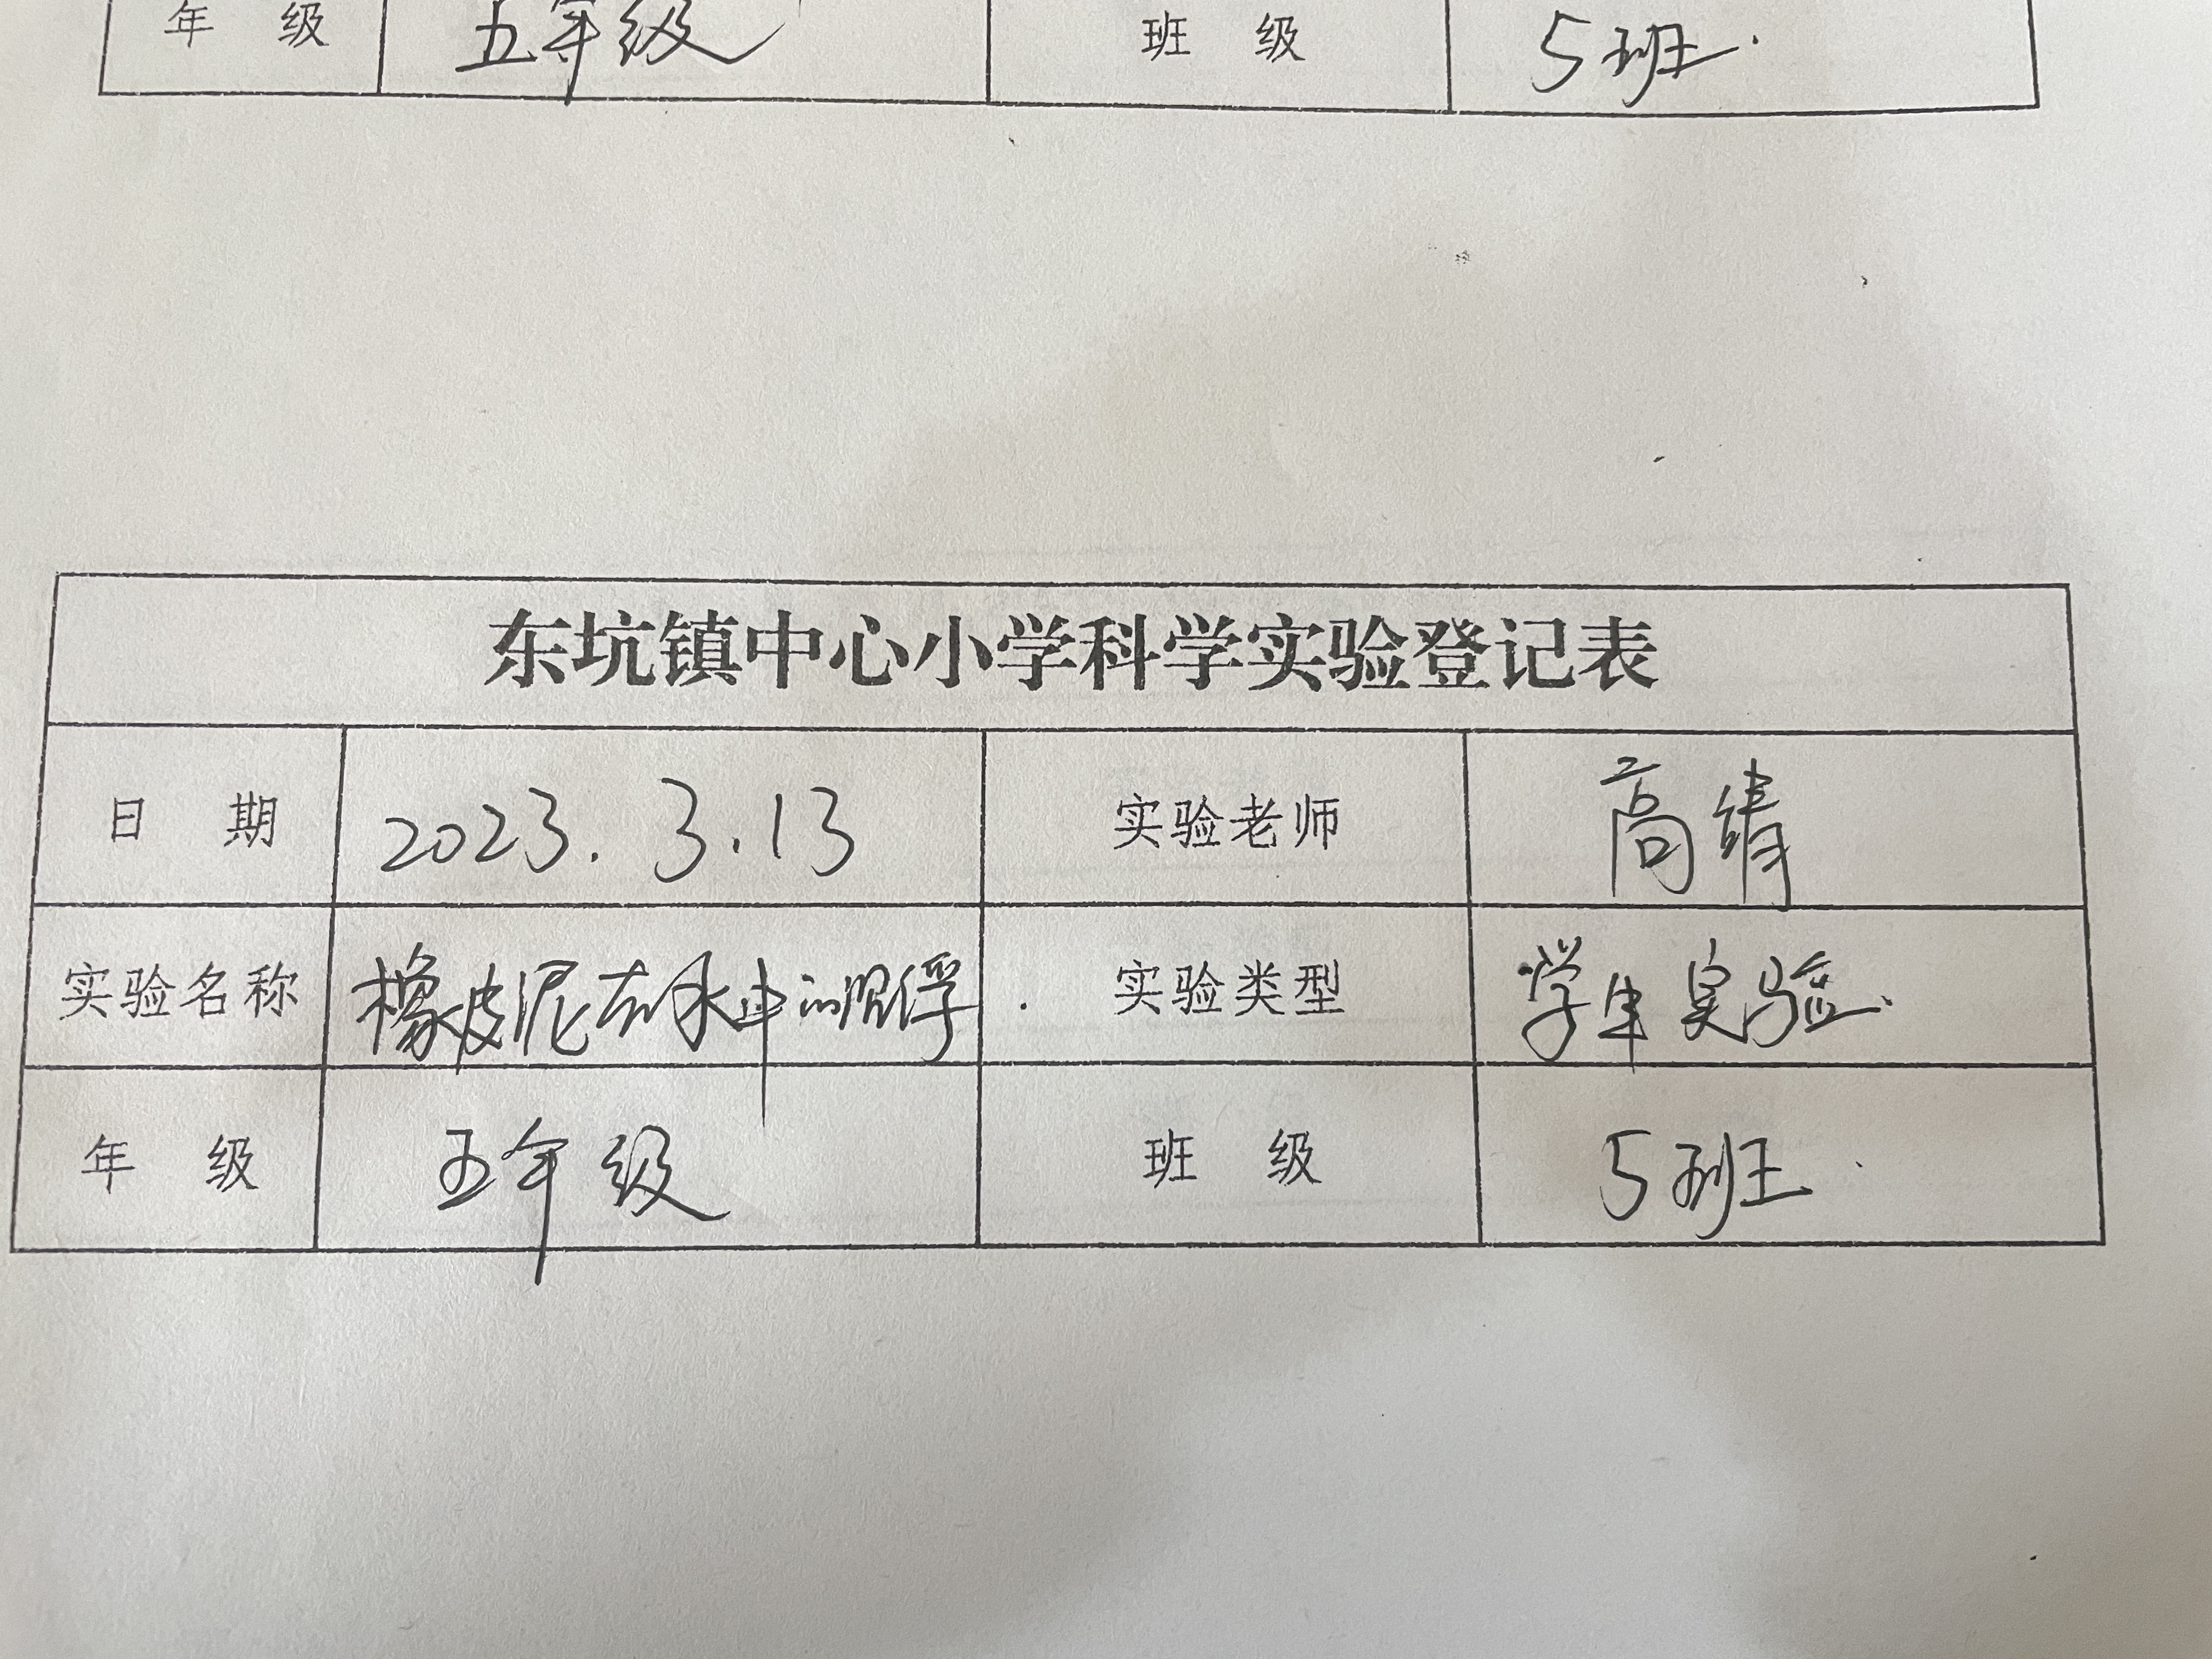 年 级 五年级 班 级 5班.
东坑镇中心小学科学实验登记表
日 期 2023.3.13 实验老师 高婧
实验名称 橡皮泥在水中的沉浮. 实验类型 学生实验.
年 级 五年级 班 级 5班.